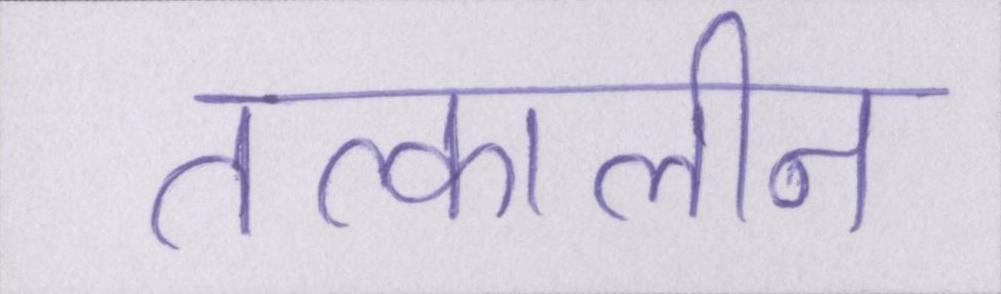 तत्कालीन